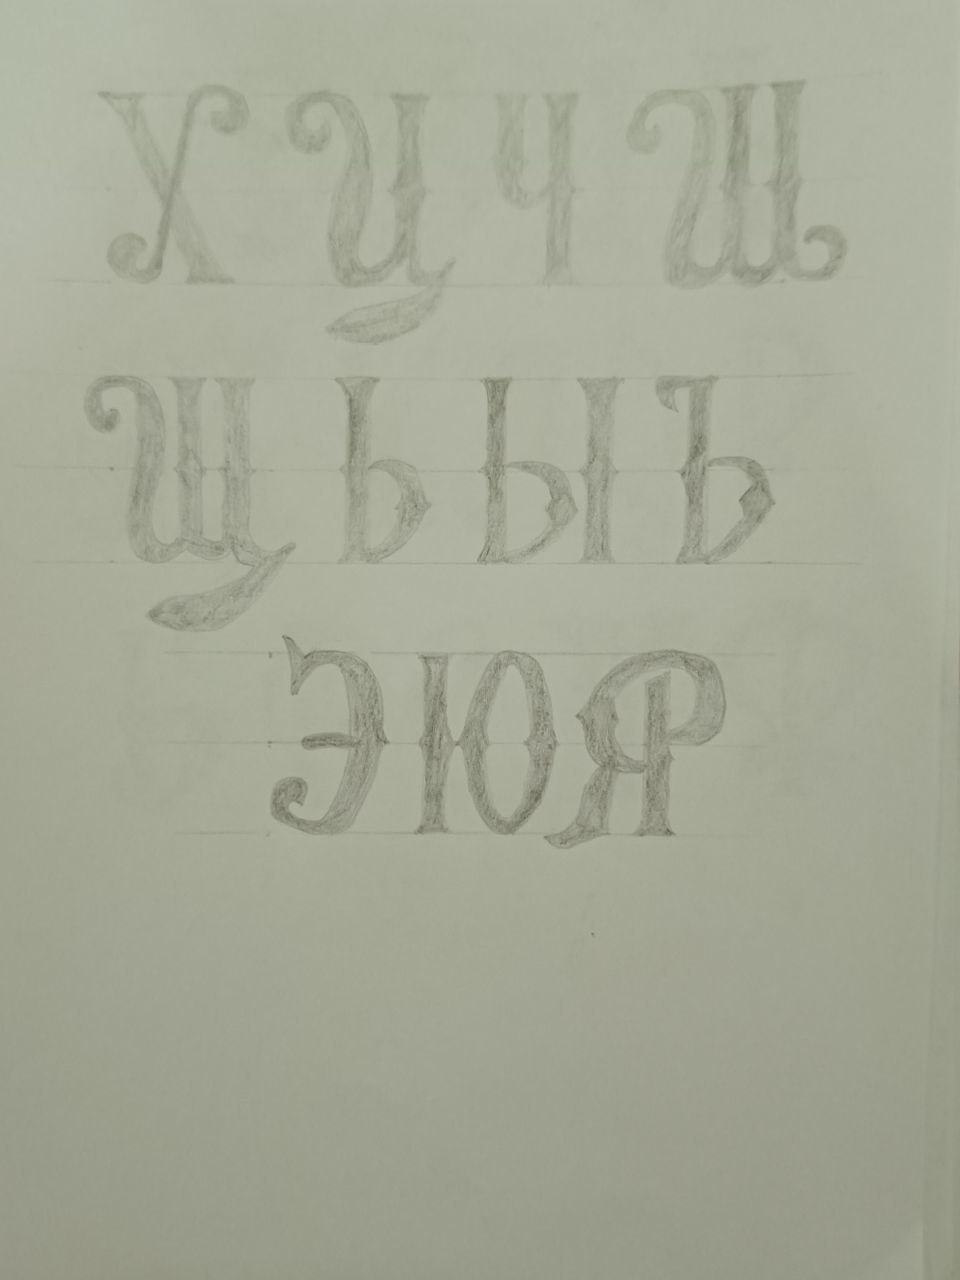 Х Ц Ч Ш
Щ Ь Ы Ъ
Э Ю Я